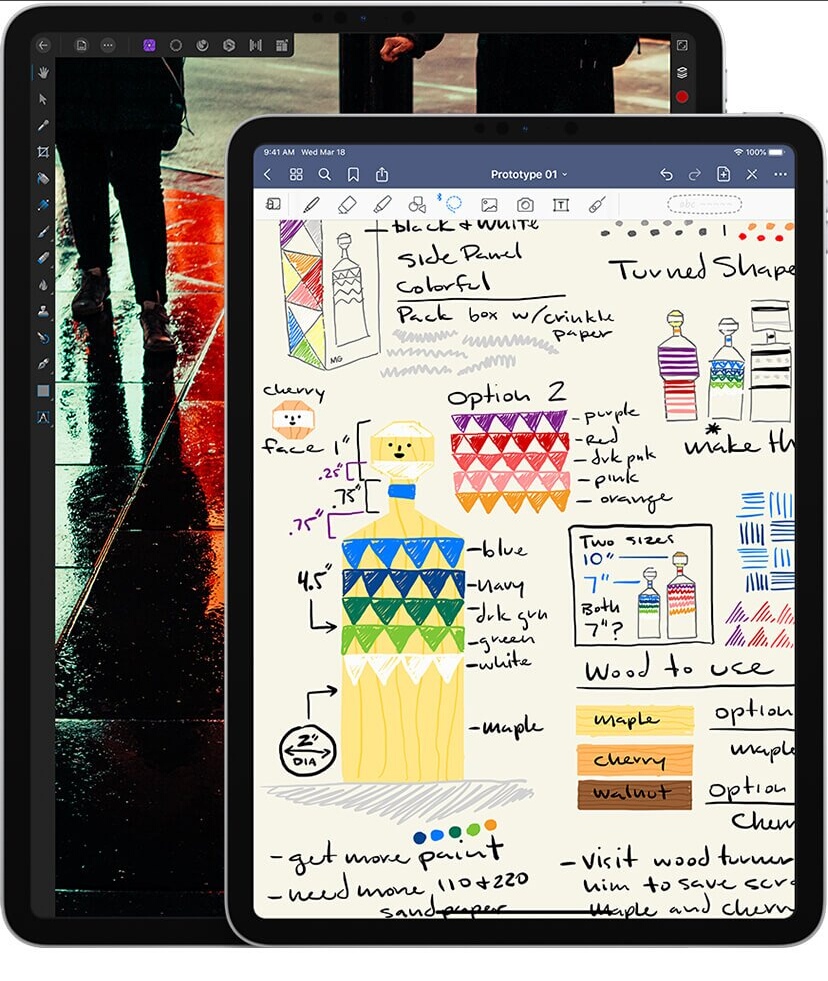 9:41 AM Wed Mar 18
100%
Prototype 01
abc
black & White
Side Panel
Colorful
Pack box w/crinkle
paper
MG
Turned Shape
cherry
face
Option 2
purple
Red
drk pnk
pink
orange
1"
.25"
.75"
.75"
4.5"
blue
navy
drk grn
green
white
maple
2"
DIA
*
make th
Two sizes
10"
7"
Both
7"?
Wood to use
maple
cherry
walnut
option
maple
option
Cherr
- get more paint
- need more 110 & 220
sandpaper
- Visit wood turner
him to save scra
Maple and cherr